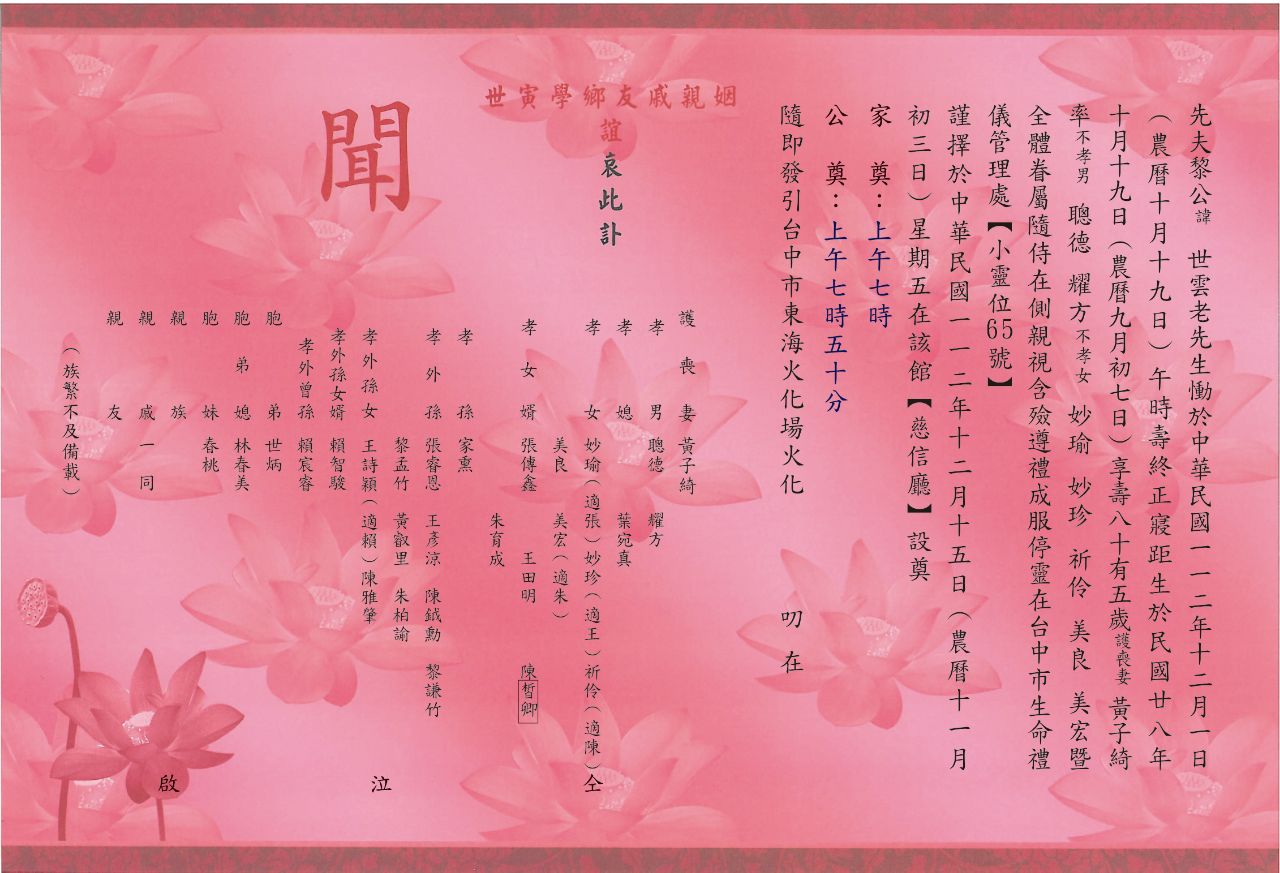 先夫黎公諱　世雲老先生慟於中華民國一一二年十二月一日
（農曆十月十九日）午時壽終正寢距生於民國廿八年
十月十九日（農曆九月初七日）享壽八十有五歲護喪妻　黃子綺
率不孝男　聰德　耀方不孝女　妙瑜　妙珍　祈伶　美良　美宏暨
全體眷屬隨侍在側親視含殮遵禮成服停靈在台中市生命禮
儀管理處【小靈位65號】
謹擇於中華民國一一二年十二月十五日（農曆十一月
初三日）星期五在該館【慈信廳】設奠
家　奠：上午七時
公　奠：上午七時五十分
隨即發引台中市東海火化場火化　　叨　在
姻親戚友鄉學寅世
誼哀此訃
聞
護喪妻　黃子綺
孝男　聰德　耀方
孝媳　葉宛真
孝女　妙瑜（適張）妙珍（適王）祈伶（適陳）仝
美良　美宏（適朱）
孝女婿　張傳鑫　王田明　陳晢卿
朱育成
孝孫　家熏
孝外孫　張睿恩　王彥淙　陳鉞勳　黎謙竹
黎孟竹　黃叡里　朱柏諭
孝外孫女　王詩穎（適賴）陳雅肇
孝外孫女婿　賴智駿　泣
孝外曾孫　賴宸睿
胞弟　世炳
胞弟媳　林春美
胞妹　春桃
親族
親戚一同　啟
親友
（族繁不及備載）